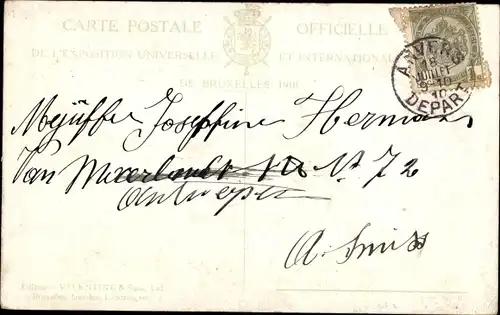 CARTE POSTALE OFFICIELLE
DE L'EXPOSITION UNIVERSELLE ET INTERNATIONALE
DE BRUXELLES 1910
ANVERS
JUILLET
10
DEPART
Mejuffer Josephine Hermans
Van Nº 72
Antwerpen
Editeurs VALENTINE & Sons, Ltd
Bruxelles, Londres